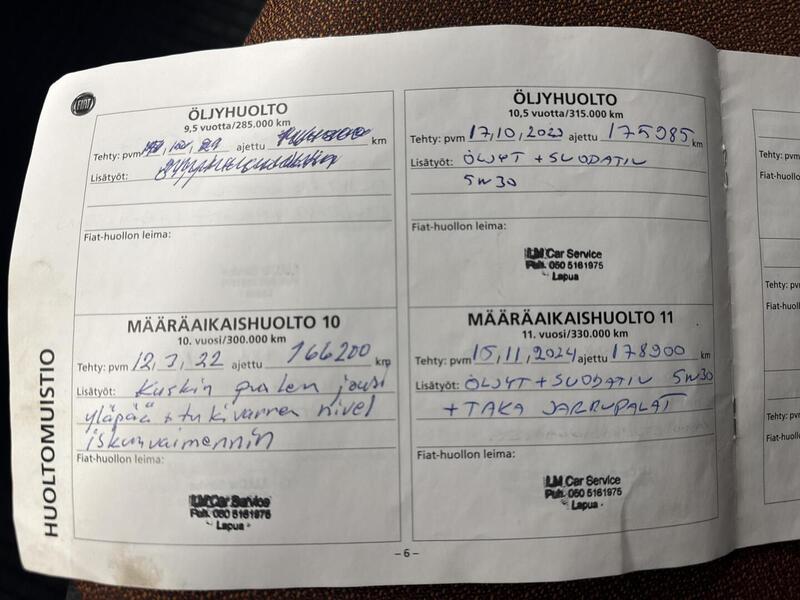 FIAT
ÖLJYHUOLTO
9,5 vuotta/285.000 km
Tehty: pvm ajettu km
Lisätyöt:
Fiat-huollon leima:
MÄÄRÄAIKAISHUOLTO 10
10. vuosi/300.000 km
Tehty: pvm 12,3,22 ajettu 166200 km
Lisätyöt: Kuskin puolen jousi
yläpää + tukivarren nivel
iskunvaimennin
Fiat-huollon leima:
LM Car Service
Puh. 050 5161975
Lapua
HUOLTOMUISTIO
ÖLJYHUOLTO
10,5 vuotta/315.000 km
Tehty: pvm 17,10,2023 ajettu 175985 km
Lisätyöt: ÖLJYT + SUODATIN
5W30
Fiat-huollon leima:
LM Car Service
Puh. 050 5161975
Lapua
MÄÄRÄAIKAISHUOLTO 11
11. vuosi/330.000 km
Tehty: pvm 15,11,2024 ajettu 178900 km
Lisätyöt: ÖLJYT + SUODATIN 5W30
+ TAKA JARRUPALAT
Fiat-huollon leima:
LM Car Service
Puh. 050 5161975
Lapua
– 6 –
Tehty: pvm
Fiat-huol
Tehty: pvm
Fiat-huol
Tehty: pvm
Fiat-huol